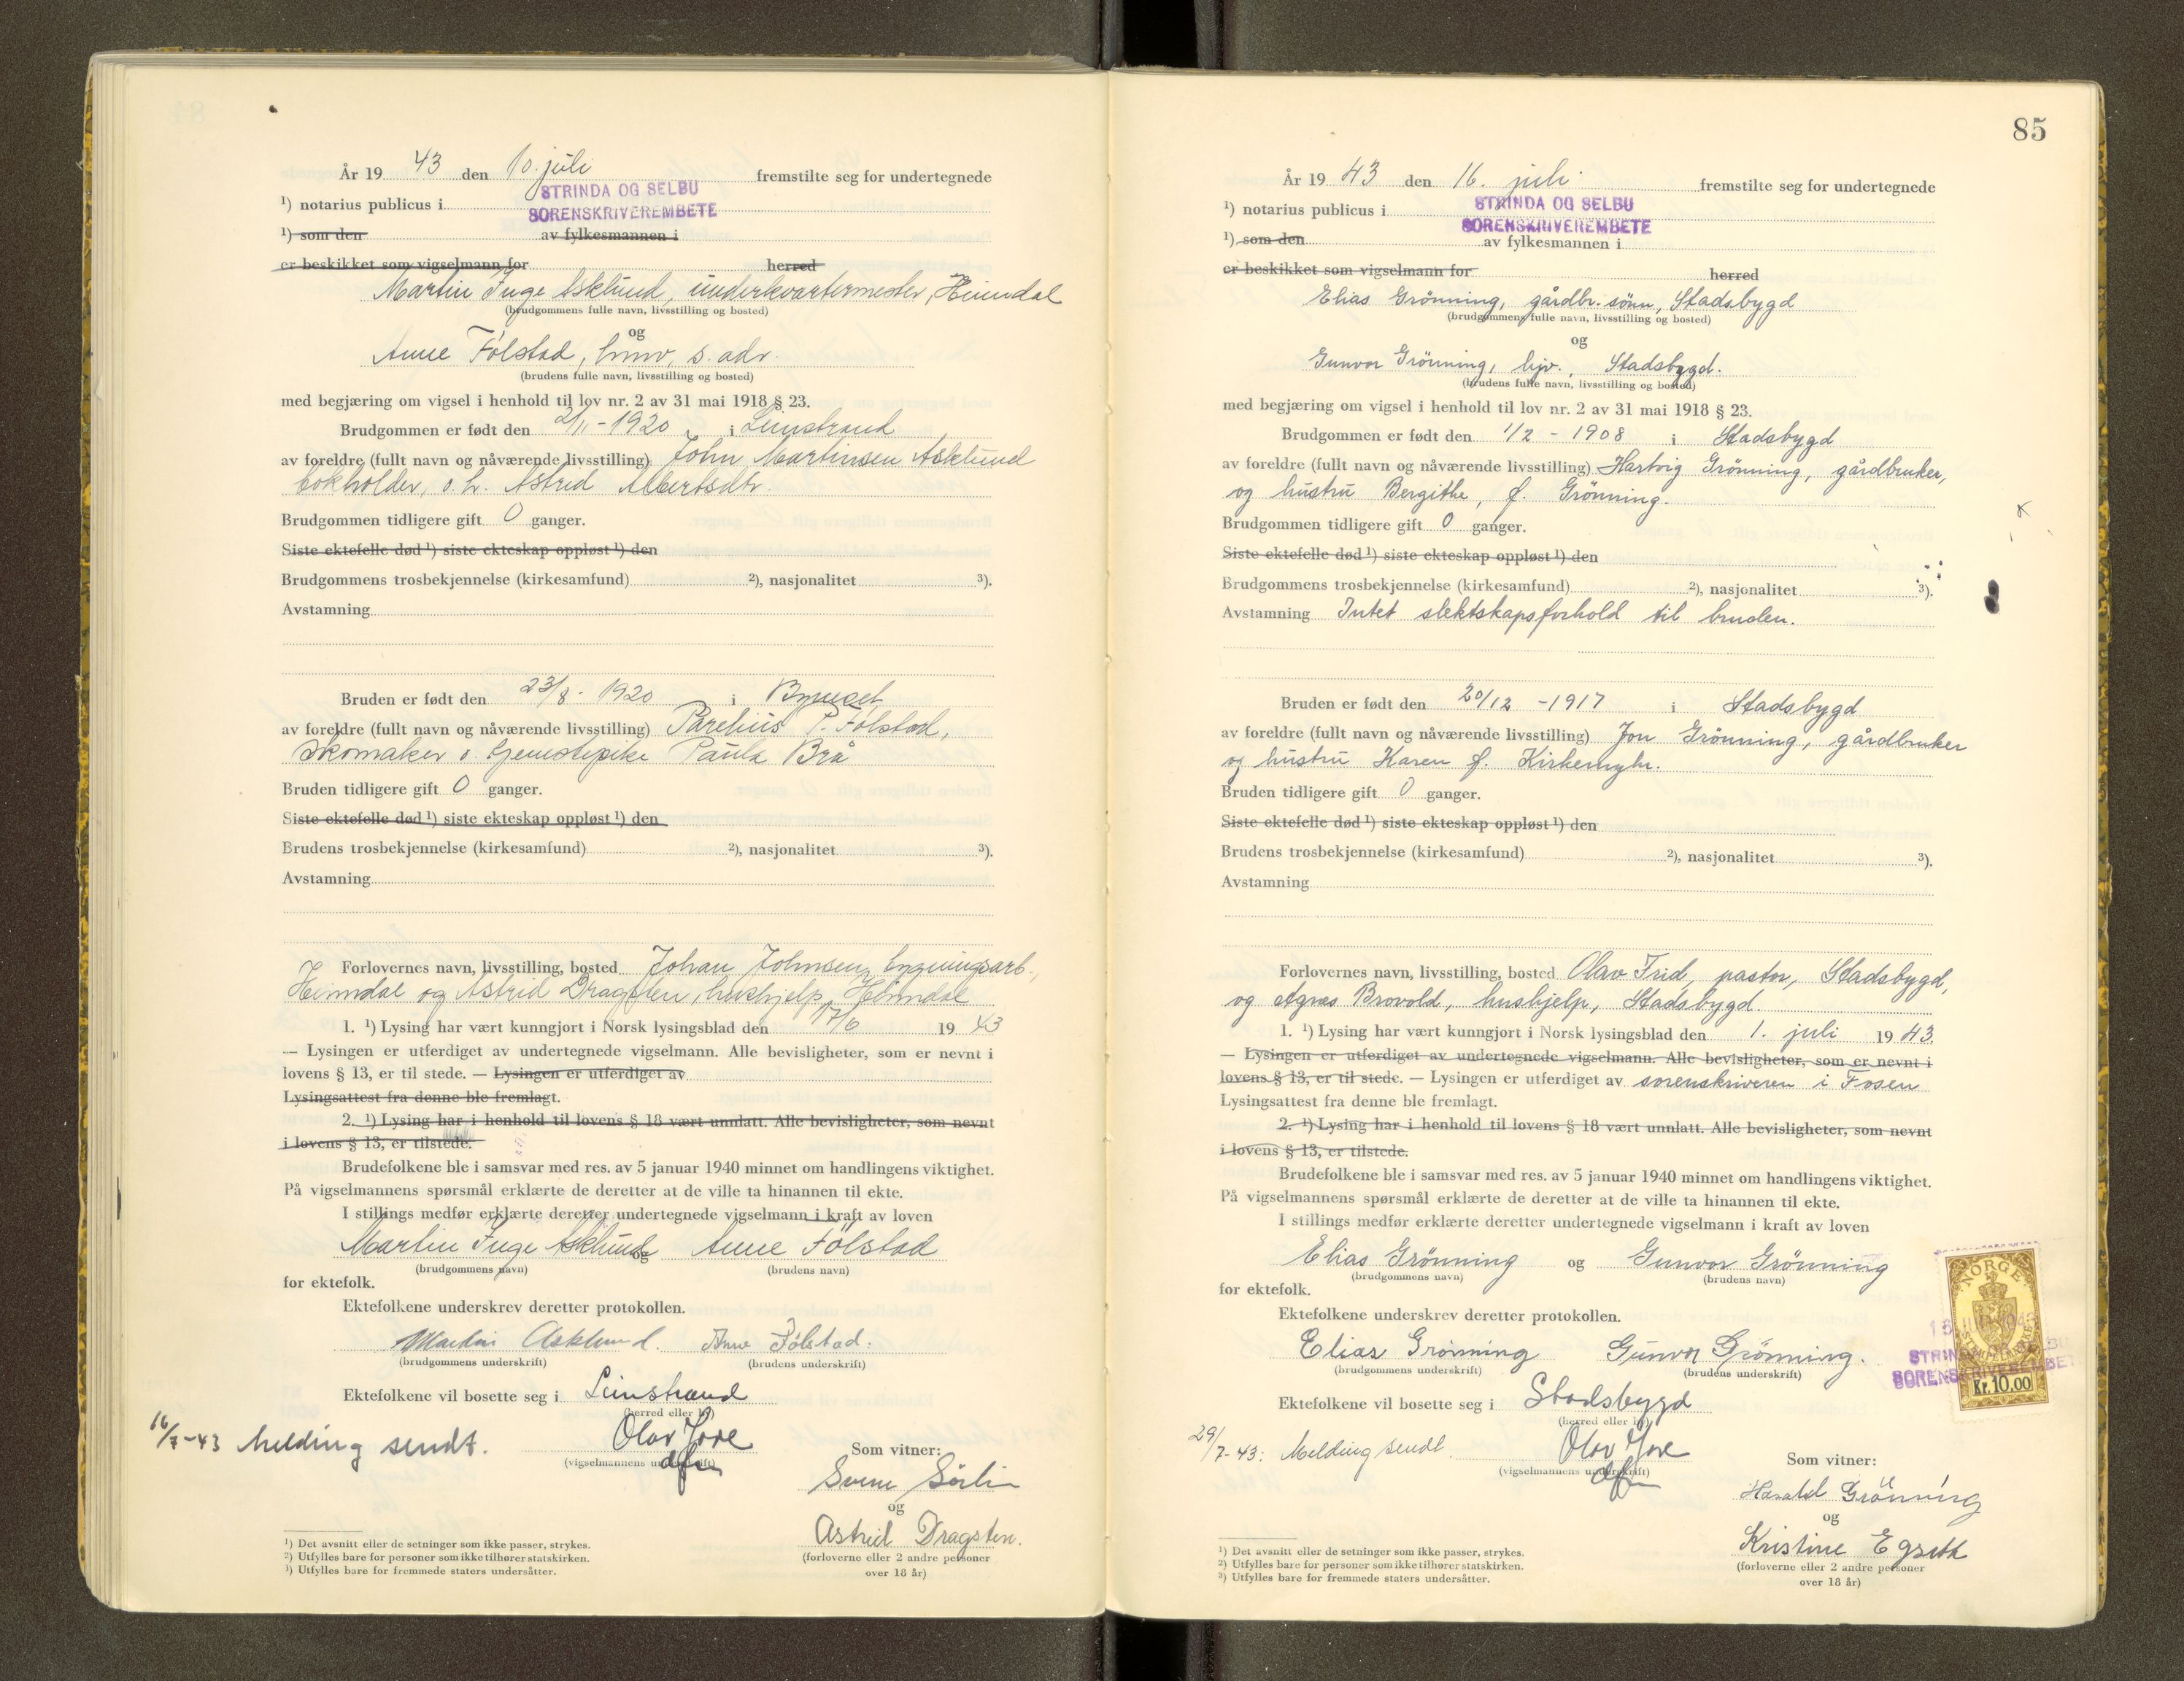 År 1943 den 10. juli fremstilte seg for undertegnede
STRINDA OG SELBU
¹) notarius publicus i SORENSKRIVEREMBETE
¹) som den av fylkesmannen i
er beskikket som vigselmann for herred
Martin Inge Asklund, underkvartermester, Heimdal
(brudgommens fulle navn, livsstilling og bosted)
og
Anne Fölstad, hmv, s. adr.
(brudens fulle navn, livsstilling og bosted)
med begjæring om vigsel i henhold til lov nr. 2 av 31 mai 1918 § 23.
Brudgommen er født den 2/11-1920 i Leinstrand
av foreldre (fullt navn og nåværende livsstilling) John Martinsen Asklund
bokholder, o.h. Astrid Albertsdtr.
Brudgommen tidligere gift 0 ganger.
Siste ektefelle død ¹) siste ekteskap oppløst ¹) den
Brudgommens trosbekjennelse (kirkesamfund) ²), nasjonalitet ³).
Avstamning
Bruden er født den 23/8- 1920 i Byneset
av foreldre (fullt navn og nåværende livsstilling) Parelius P. Fölstad,
skomaker o. tjenestepike Paula Brå
Bruden tidligere gift 0 ganger.
Siste ektefelle død ¹) siste ekteskap oppløst ¹) den
Brudens trosbekjennelse (kirkesamfund) ²), nasjonalitet ³).
Avstamning
Forlovernes navn, livsstilling, bosted Johan Johnsen, bygningsarb.,
Heimdal og Astrid Dragsten, hushjelp, Heimdal
1. ¹) Lysing har vært kunngjort i Norsk lysingsblad den 17/6 1943
— Lysingen er utferdiget av undertegnede vigselmann. Alle bevisligheter, som er nevnt i
lovens § 13, er til stede. — Lysingen er utferdiget av
Lysingsattest fra denne ble fremlagt.
2. ¹) Lysing har i henhold til lovens § 18 vært unnlatt. Alle bevisligheter, som nevnt
i lovens § 13, er tilstede.
Brudefolkene ble i samsvar med res. av 5 januar 1940 minnet om handlingens viktighet.
På vigselmannens spørsmål erklærte de deretter at de ville ta hinannen til ekte.
I stillings medfør erklærte deretter undertegnede vigselmann i kraft av loven
Martin Inge Asklund og Anne Fölstad
(brudgommens navn) (brudens navn)
for ektefolk.
Ektefolkene underskrev deretter protokollen.
Martin Asklund. Anne Fölstad.
(brudgommens underskrift) (brudens underskrift)
Ektefolkene vil bosette seg i Leinstrand
(herred eller by)
16/7-43 melding sendt. Olav Jore
(vigselmannens underskrift)
dfm
Som vitner:
Svenn Sörli
og
Astrid Dragsten.
(forloverne eller 2 andre personer
over 18 år)
¹) Det avsnitt eller de setninger som ikke passer, strykes.
²) Utfylles bare for personer som ikke tilhører statskirken.
³) Utfylles bare for fremmede staters undersåtter.
85
År 1943 den 16. juli fremstilte seg for undertegnede
STRINDA OG SELBU
¹) notarius publicus i SORENSKRIVEREMBETE
¹) som den av fylkesmannen i
er beskikket som vigselmann for herred
Elias Grönning, gårdbr. sönn, Stadsbygd
(brudgommens fulle navn, livsstilling og bosted)
og
Gunvor Grönning, hjv., Stadsbygd.
(brudens fulle navn, livsstilling og bosted)
med begjæring om vigsel i henhold til lov nr. 2 av 31 mai 1918 § 23.
Brudgommen er født den 1/2 - 1908 i Stadsbygd
av foreldre (fullt navn og nåværende livsstilling) Hartvig Grönning, gårdbruker,
og hustru Bergithe, f. Grönning.
Brudgommen tidligere gift 0 ganger.
Siste ektefelle død ¹) siste ekteskap oppløst ¹) den
Brudgommens trosbekjennelse (kirkesamfund) ²), nasjonalitet ³).
Avstamning Intet slektskapsforhold til bruden.
Bruden er født den 20/12 -1917 i Stadsbygd
av foreldre (fullt navn og nåværende livsstilling) Jon Grönning, gårdbruker
og hustru Karen f. Kirkemyhr.
Bruden tidligere gift 0 ganger.
Siste ektefelle død ¹) siste ekteskap oppløst ¹) den
Brudens trosbekjennelse (kirkesamfund) ²), nasjonalitet ³).
Avstamning
Forlovernes navn, livsstilling, bosted Olav Trid, pastor, Stadsbygd,
og Agnes Brovold, hushjelp, Stadsbygd.
1. ¹) Lysing har vært kunngjort i Norsk lysingsblad den 1. juli 1943.
— Lysingen er utferdiget av undertegnede vigselmann. Alle bevisligheter, som er nevnt i
lovens § 13, er til stede. — Lysingen er utferdiget av sorenskriveren i Fosen
Lysingsattest fra denne ble fremlagt.
2. ¹) Lysing har i henhold til lovens § 18 vært unnlatt. Alle bevisligheter, som nevnt
i lovens § 13, er tilstede.
Brudefolkene ble i samsvar med res. av 5 januar 1940 minnet om handlingens viktighet.
På vigselmannens spørsmål erklærte de deretter at de ville ta hinannen til ekte.
I stillings medfør erklærte deretter undertegnede vigselmann i kraft av loven
Elias Grönning og Gunvor Grönning
(brudgommens navn) (brudens navn)
for ektefolk.
Ektefolkene underskrev deretter protokollen.
Elias Grönning Gunvor Grönning.
(brudgommens underskrift) (brudens underskrift)
NORGE
STRINDA OG SELBU
SORENSKRIVEREMBETE
Kr. 10.00
Ektefolkene vil bosette seg i Stadsbygd
(herred eller by)
29/7-43: Melding sendt Olav Jore
(vigselmannens underskrift)
dfm
Som vitner:
Harald Grönning
og
Kristine Egseth
(forloverne eller 2 andre personer
over 18 år)
¹) Det avsnitt eller de setninger som ikke passer, strykes.
²) Utfylles bare for personer som ikke tilhører statskirken.
³) Utfylles bare for fremmede staters undersåtter.